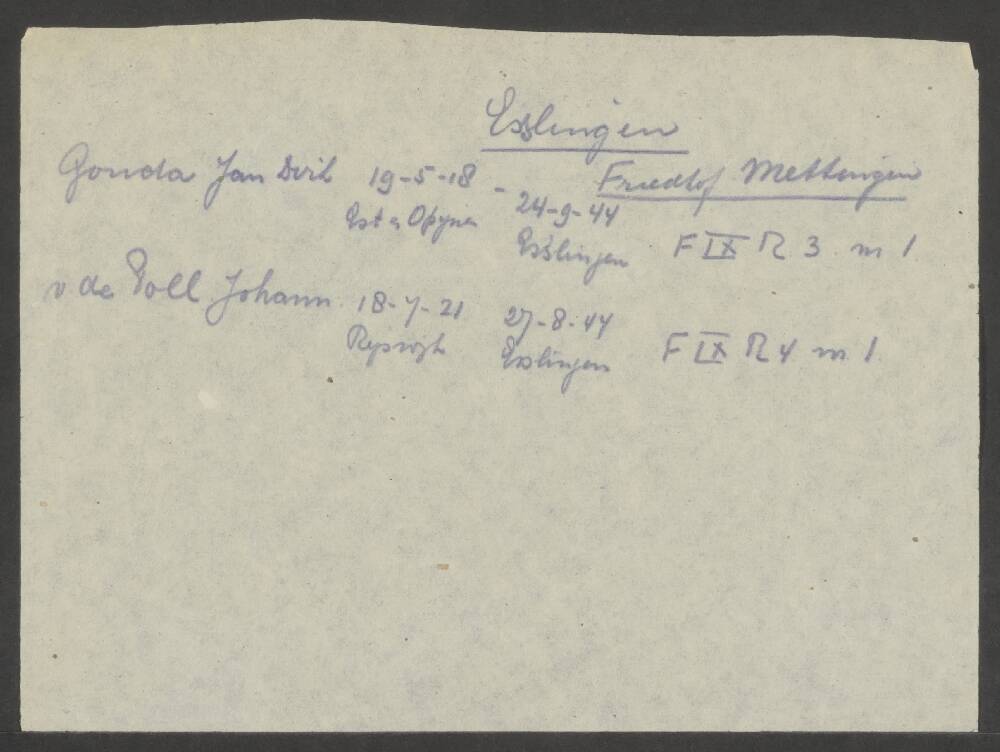 Esslingen
Friedhof Mettingen
Gouda Jan Dirk 19-5-18 - 24-9-44
Est a Opynen Esslingen F IX R 3 m 1
v de Poll Johann 18-7-21 27-8-44
Esslingen F IX R 4 m 1